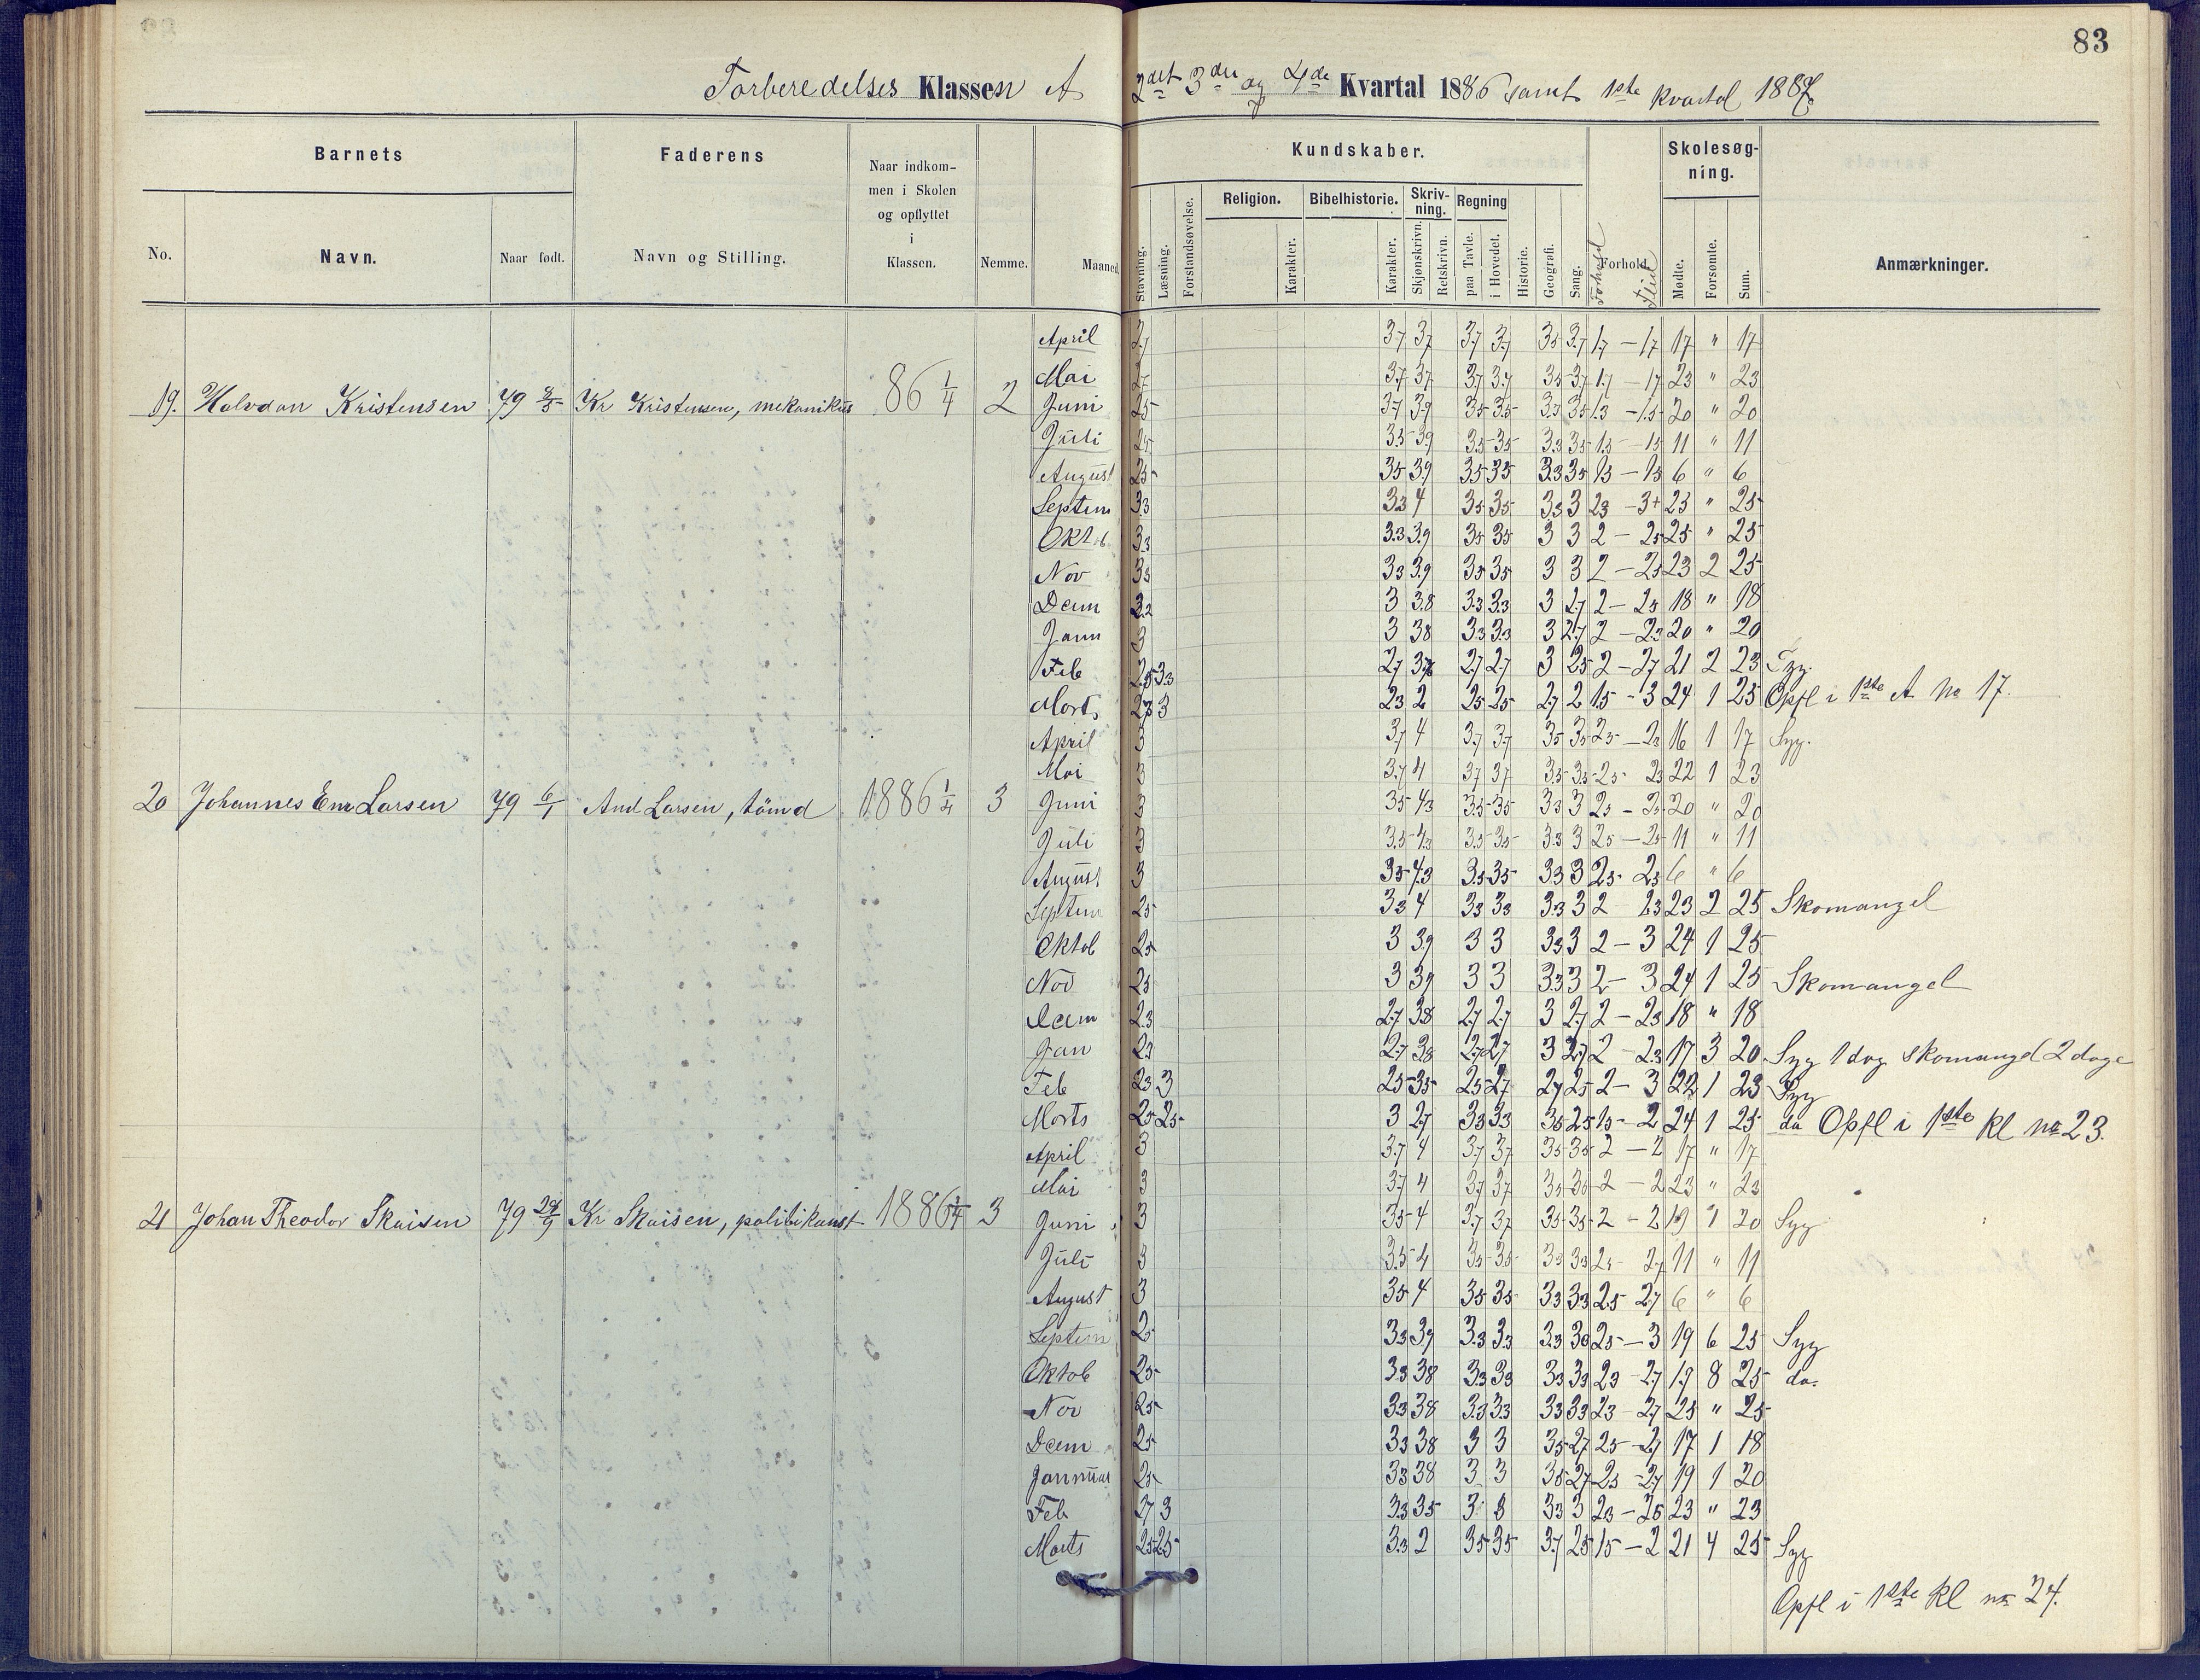 83
Forberedelses Klassen A 2det 3die og 4de Kvartal 1886 samt 1ste Kvartal 1887
Barnets Faderens Naar indkom- Kundskaber. Skolesøg-
men i Skolen ning.
og opflyttet Religion. Bibelhistorie. Skriv- Regning
i ning.
No. Navn. Naar født. Navn og Stilling. Klassen. Nemme. Maaned. Stavning. Læsning. Forstandsøvelse. Karakter. Karakter. Skjønskrivn. Retskrivn. paa Tavle. i Hovedet. Historie. Geografi. Sang. Forhold. Forhold Flid Mødte. Forsømte. Sum. Anmærkninger.
April 2.7 3.7 3.7 3.7 3.7 3.5 3.7 1.7 – 1.7 17 " 17
Mai 2.7 3.7 3.7 3.7 3.7 3.5 3.7 1.7 – 1.7 23 " 23
19. Halvdan Kristensen 79 Kr Kristensen, mekanikus 86 1/4 2 Juni 2.5 3.7 3.9 3.5 3.5 3.3 3.5 1.3 – 1.5 20 " 20
Juli 2.5 3.5 3.9 3.5 3.5 3.3 3.5 1.5 – 1.5 11 " 11
August 2.5 3.5 3.9 3.5 3.5 3.3 3.5 1.5 – 1.5 6 " 6
Septem 3.3 3.3 4 3.5 3.5 3.3 3 2.3 – 3+ 25 " 25
Oktob 3.3 3.3 3.9 3.5 3.5 3 3 2 – 2.5 25 " 25
Nov 3.3 3.3 3.9 3.5 3.5 3 3 2 – 2.5 23 2 25
Decm 3.2 3 3.8 3.3 3.3 3 2.7 2 – 2.3 18 " 18
Jann 3 3 3.8 3.3 3.3 3 2.7 2 – 2.3 20 " 20
Feb 2.5 3.3 2.7 3.7 2.7 2.7 3 2.5 2 – 2.7 21 2 23 Syg.
Marts 2.3 3 2.3 2 2.5 2.5 2.7 2 1.5 – 3 24 1 25 Opfl i 1ste A No 17.
April 3 3.7 4 3.7 3.7 3.5 3.5 2.5 – 2.3 16 1 17 Syg.
Mai 3 3.7 4 3.7 3.7 3.5 3.5 2.5 2.3 22 1 23
20 Johannes Em Larsen 79 6/1 And Larsen, tömd 1886 1/4 3 Juni 3 3.5 4.3 3.5 3.5 3.3 3 2.5 – 2.5 20 " 20
Juli 3 3.5 4.3 3.5 3.5 3.3 3 2.5 – 2.5 11 " 11
August 3 3.5 4.3 3.5 3.5 3.3 3 2.5 2.5 6 " 6
Septem 2.5 3.3 4 3.3 3.3 3.3 3 2 – 2.3 23 2 25 Skomangel
Oktob 2.5 3 3.9 3 3 3.3 3 2 – 3 24 1 25
Nov 2.5 3 3.9 3 3 3.3 3 2 – 3 24 1 25 Skomangel
Decm 2.3 2.7 3.8 2.7 2.7 3 2.7 2 – 2.3 18 " 18
Jan 2.3 2.7 3.8 2.7 2.7 3 2.7 2 – 2.3 17 3 20 Syg 1 dag skomangel 2 dage
Feb 2.3 3 2.5 3.5 2.5 2.7 2.7 2.5 2 – 3 22 1 23 Syg
Marts 2.5 2.5 3 2.7 3.3 3.3 3.5 2.5 1.5 – 2 24 1 25 do Opfl i 1ste Kl no 23.
April 3 3.7 4 3.7 3.7 3.5 3.5 2 – 2 17 " 17
Mai 3 3.7 4 3.7 3.7 3.5 3.5 2 – 2 23 " 23
21 Johan Theodor Skaisen 79 29/9 Kr Skaisen, politikonst 1886 1/4 3 Juni 3 3.5 4 3.7 3.7 3.5 3.5 2 – 2 19 1 20 Syg
Juli 3 3.5 4 3.5 3.5 3.3 3.3 2.5 – 2.7 11 " 11
August 3 3.5 4 3.5 3.5 3.3 3.3 2.5 – 2.7 6 " 6
Septem 2.5 3.3 3.9 3.3 3.3 3.3 3.3 2.5 – 3 19 6 25 Syg
Oktob 2.5 3.3 3.8 3.3 3.3 3.3 3.3 2.3 – 2.7 8 25 do.
Nov 2.5 3.3 3.8 3.3 3.3 3.3 3.3 2.3 – 2.7 25 " 25
Decm 2.5 3.3 3.8 3 3 3.5 2.7 2.5 – 2.7 17 1 18
Jannuar 2.5 3.3 3.8 3 3 3.5 2.7 2.5 – 2.7 19 1 20
Feb 2.7 3 3.3 3.5 3 3 3.3 3 2.3 – 2.5 23 " 23
Marts 2.5 2.5 3.3 2 3.5 3.5 3.7 2.5 1.5 – 2 21 4 25 Syg
Opfl i 1ste Kl no 24.